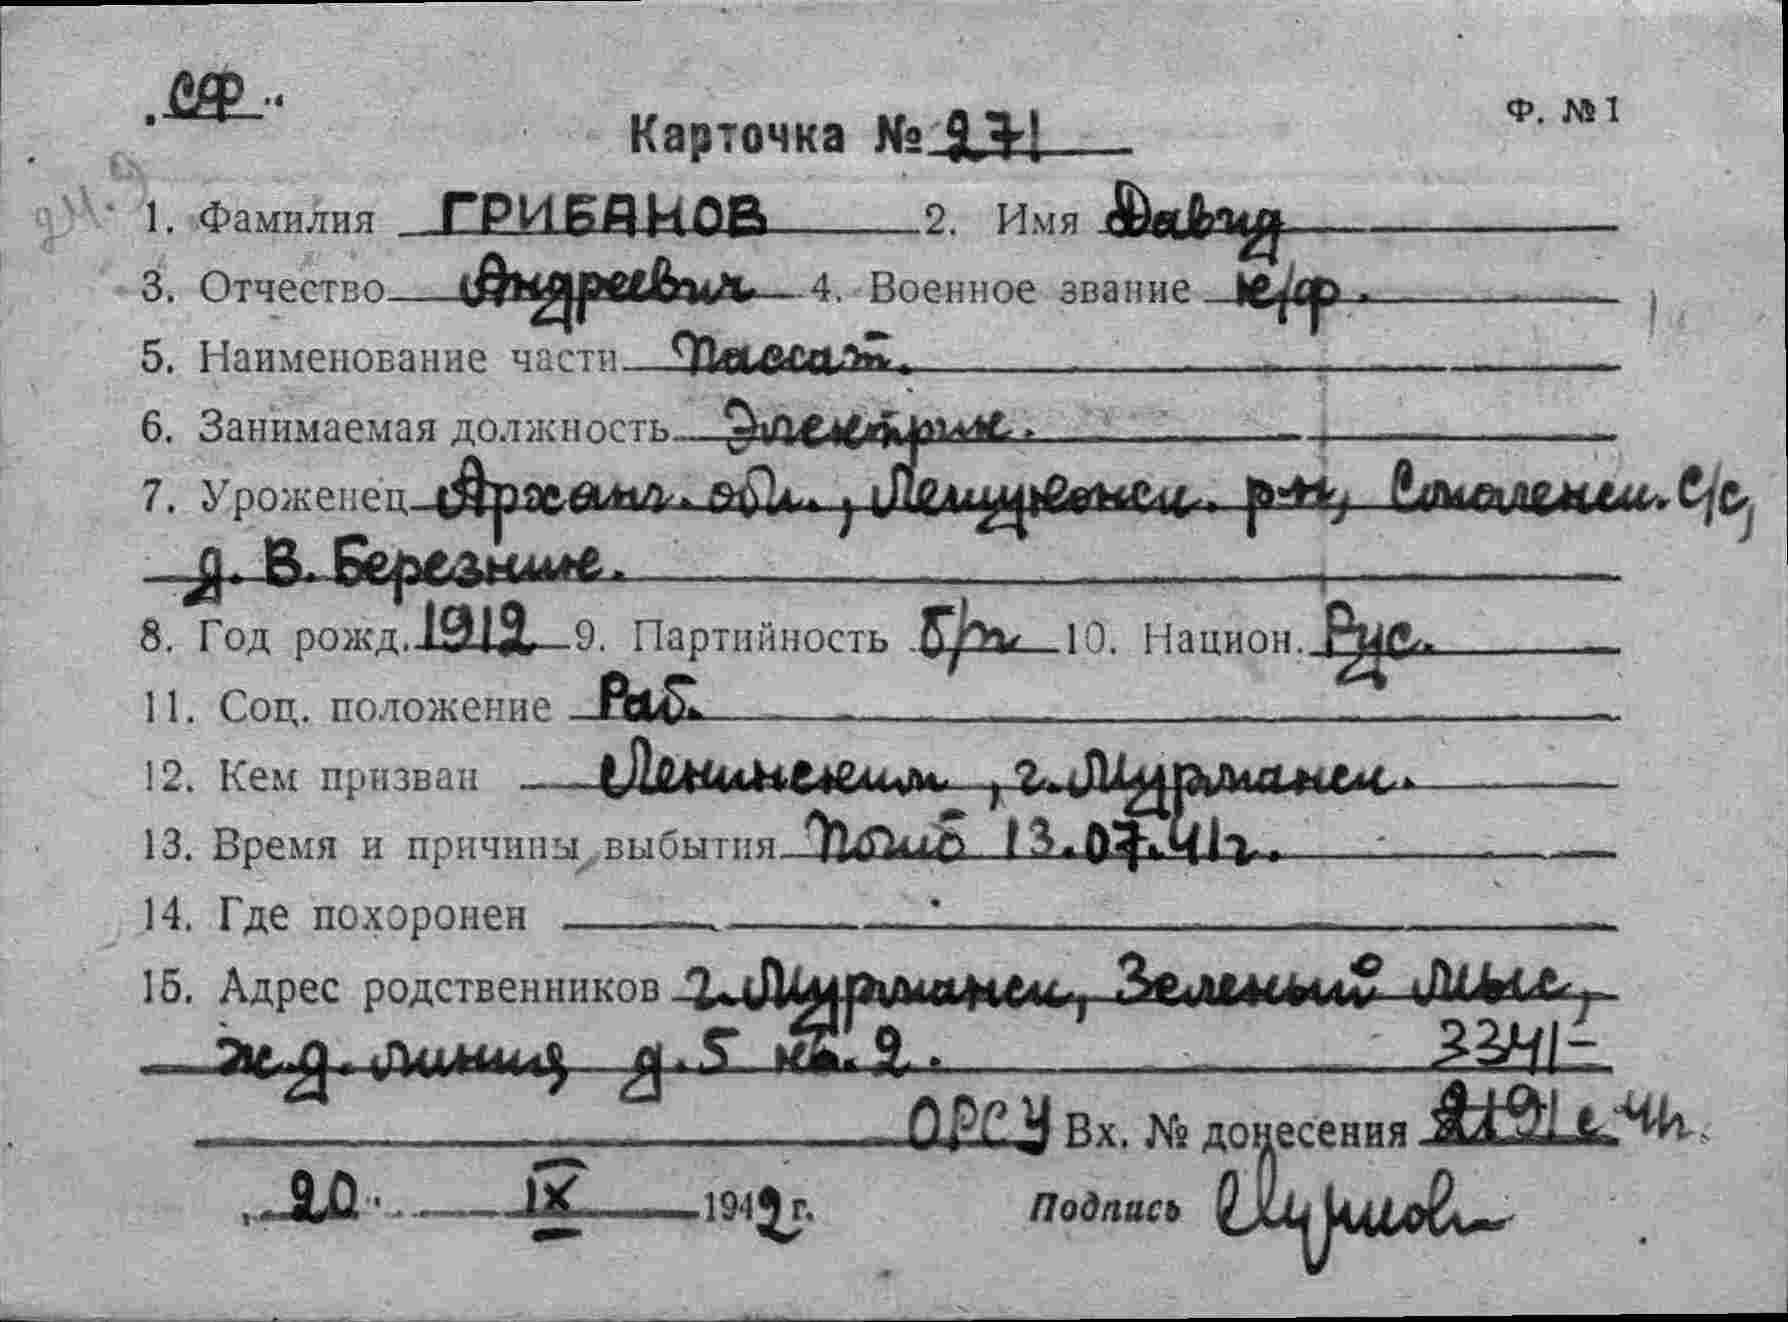 „СФ“
Ф. № 1
Карточка № 271
1. Фамилия ГРИБАНОВ 2. Имя Давид
3. Отчество Андреевич 4. Военное звание к/ф.
5. Наименование части Пассат.
6. Занимаемая должность Электрик.
7. Уроженец Арханг. обл., Лешуконск. р-н, Смоленск. С/с,
д. В. Березник.
8. Год рожд. 1912 9. Партийность б/п 10. Национ. Рус.
11. Соц. положение Раб.
12. Кем призван Ленинским, г. Мурманск.
13. Время и причины выбытия Погиб 13.07.41г.
14. Где похоронен
15. Адрес родственников г. Мурманск, Зеленый Мыс,
ж.д. линия д. 5 кв. 2.
3341-
ОРСУ Вх. № донесения 2191с 41г.
„20“ IX 1942 г. Подпись